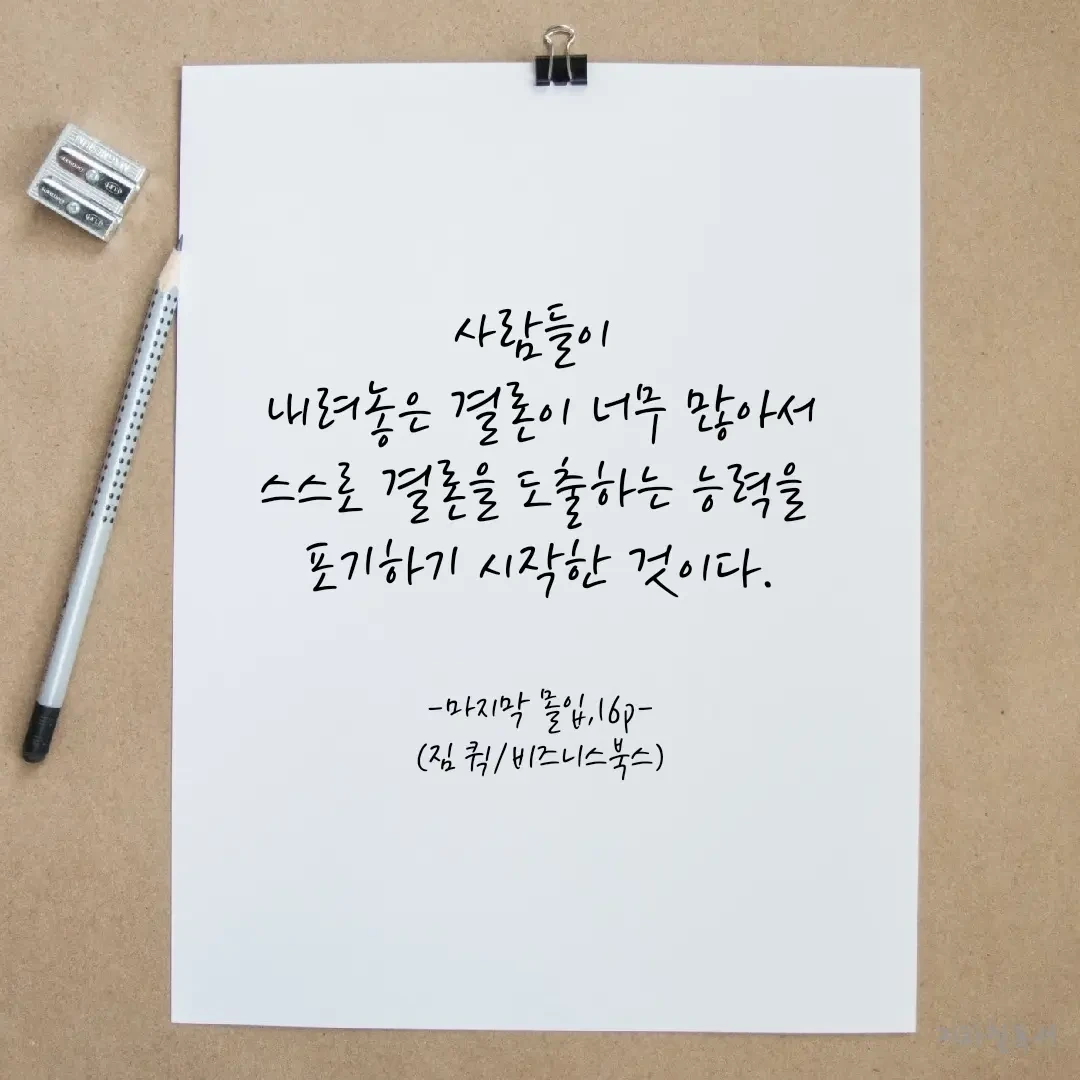 사람들이
내려놓은 결론이 너무 많아서
스스로 결론을 도출하는 능력을
포기하기 시작한 것이다.
-마지막 몰입,16p-
(짐 퀵/비즈니스북스)